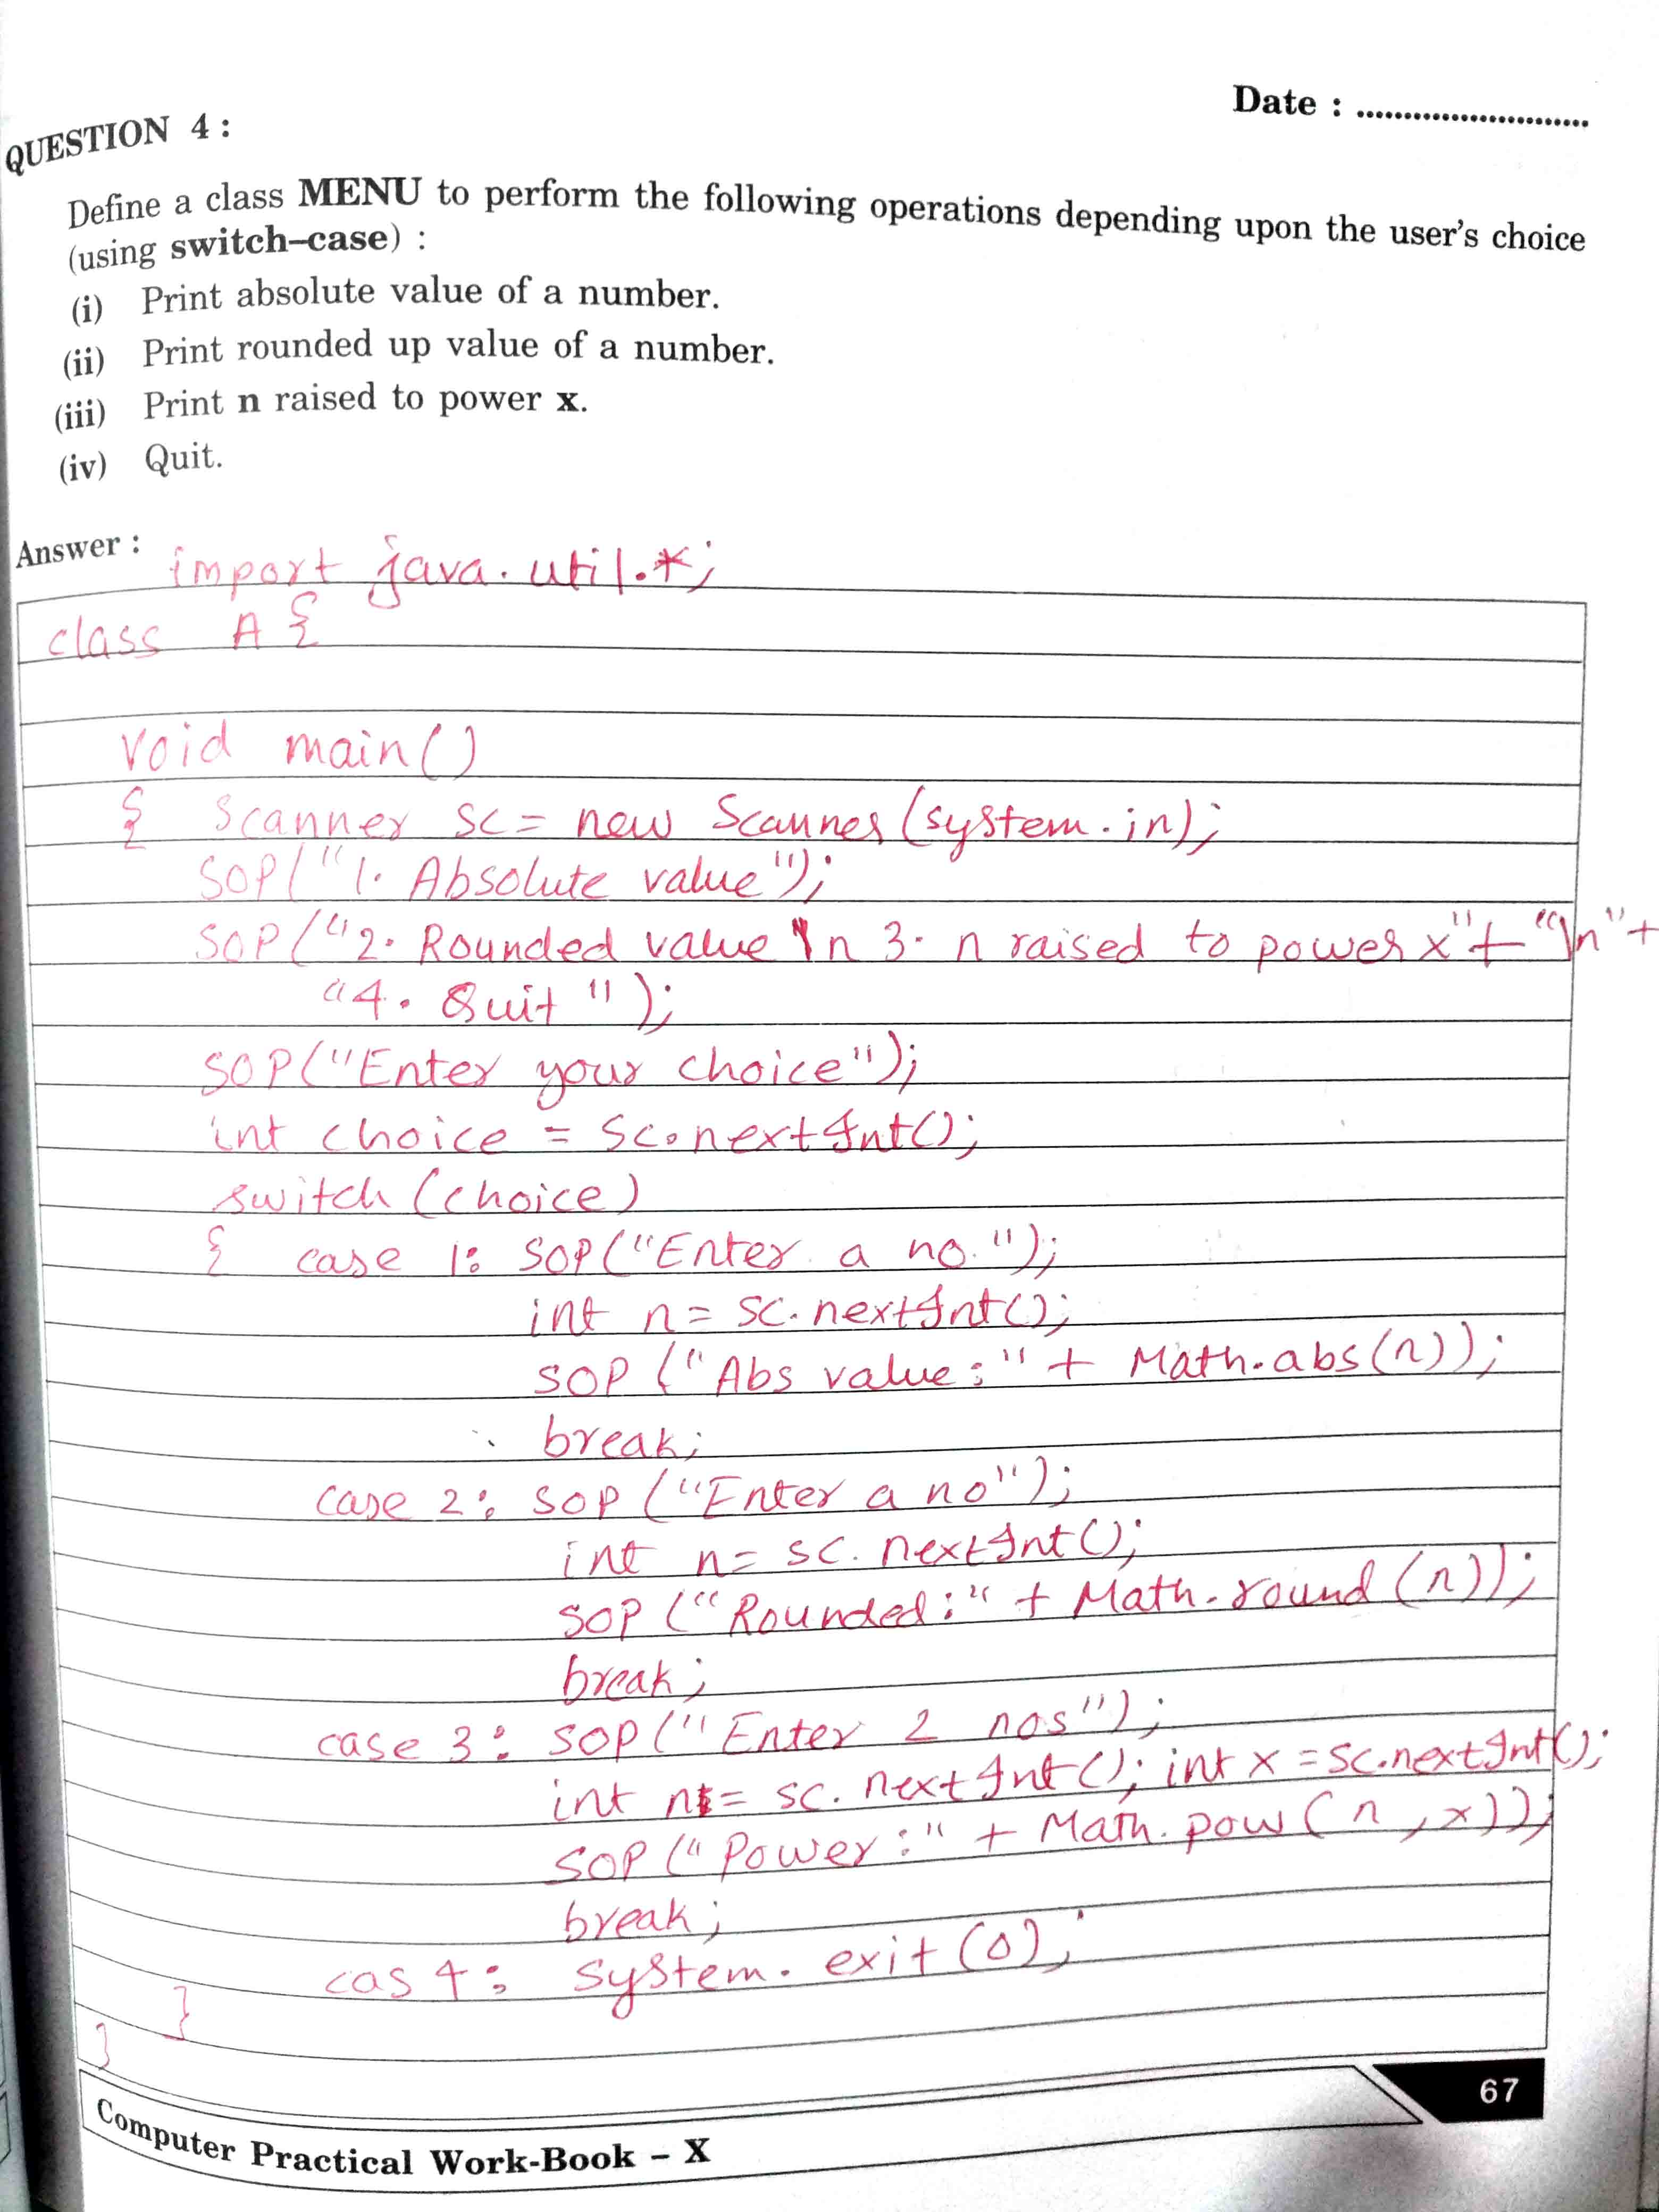 Date : ..........................
QUESTION 4 :
Define a class MENU to perform the following operations depending upon the user's choice
(using switch–case) :
(i) Print absolute value of a number.
(ii) Print rounded up value of a number.
(iii) Print n raised to power x.
(iv) Quit.
Answer :
import java.util.*;
class A {
void main()
{ Scanner sc = new Scanner(system.in);
SOP("1. Absolute value");
SOP("2. Rounded value \n 3. n raised to power x" + "\n" +
"4. Quit");
SOP("Enter your choice");
int choice = sc.nextInt();
switch (choice)
{ case 1: SOP("Enter a no.");
int n = sc.nextInt();
SOP ("Abs value:" + Math.abs(n));
break;
case 2: SOP ("Enter a no");
int n = sc.nextInt();
SOP ("Rounded:" + Math.round (n));
break;
case 3: SOP("Enter 2 nos");
int n = sc.nextInt(); int x = sc.nextInt();
SOP ("Power:" + Math.pow (n, x));
break;
cas 4: system.exit(0);
}
}
67
Computer Practical Work-Book – X